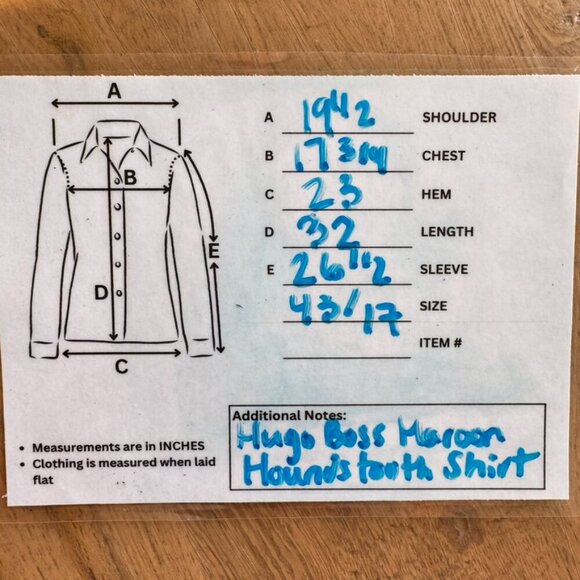 A
A 19 1/2 SHOULDER
B 17 3/4 CHEST
B
C 23 HEM
D 32 LENGTH
E
E 26 1/2 SLEEVE
D
43/17 SIZE
ITEM #
C
Additional Notes:
Hugo Boss Maroon
Hound's tooth Shirt
• Measurements are in INCHES
• Clothing is measured when laid
flat